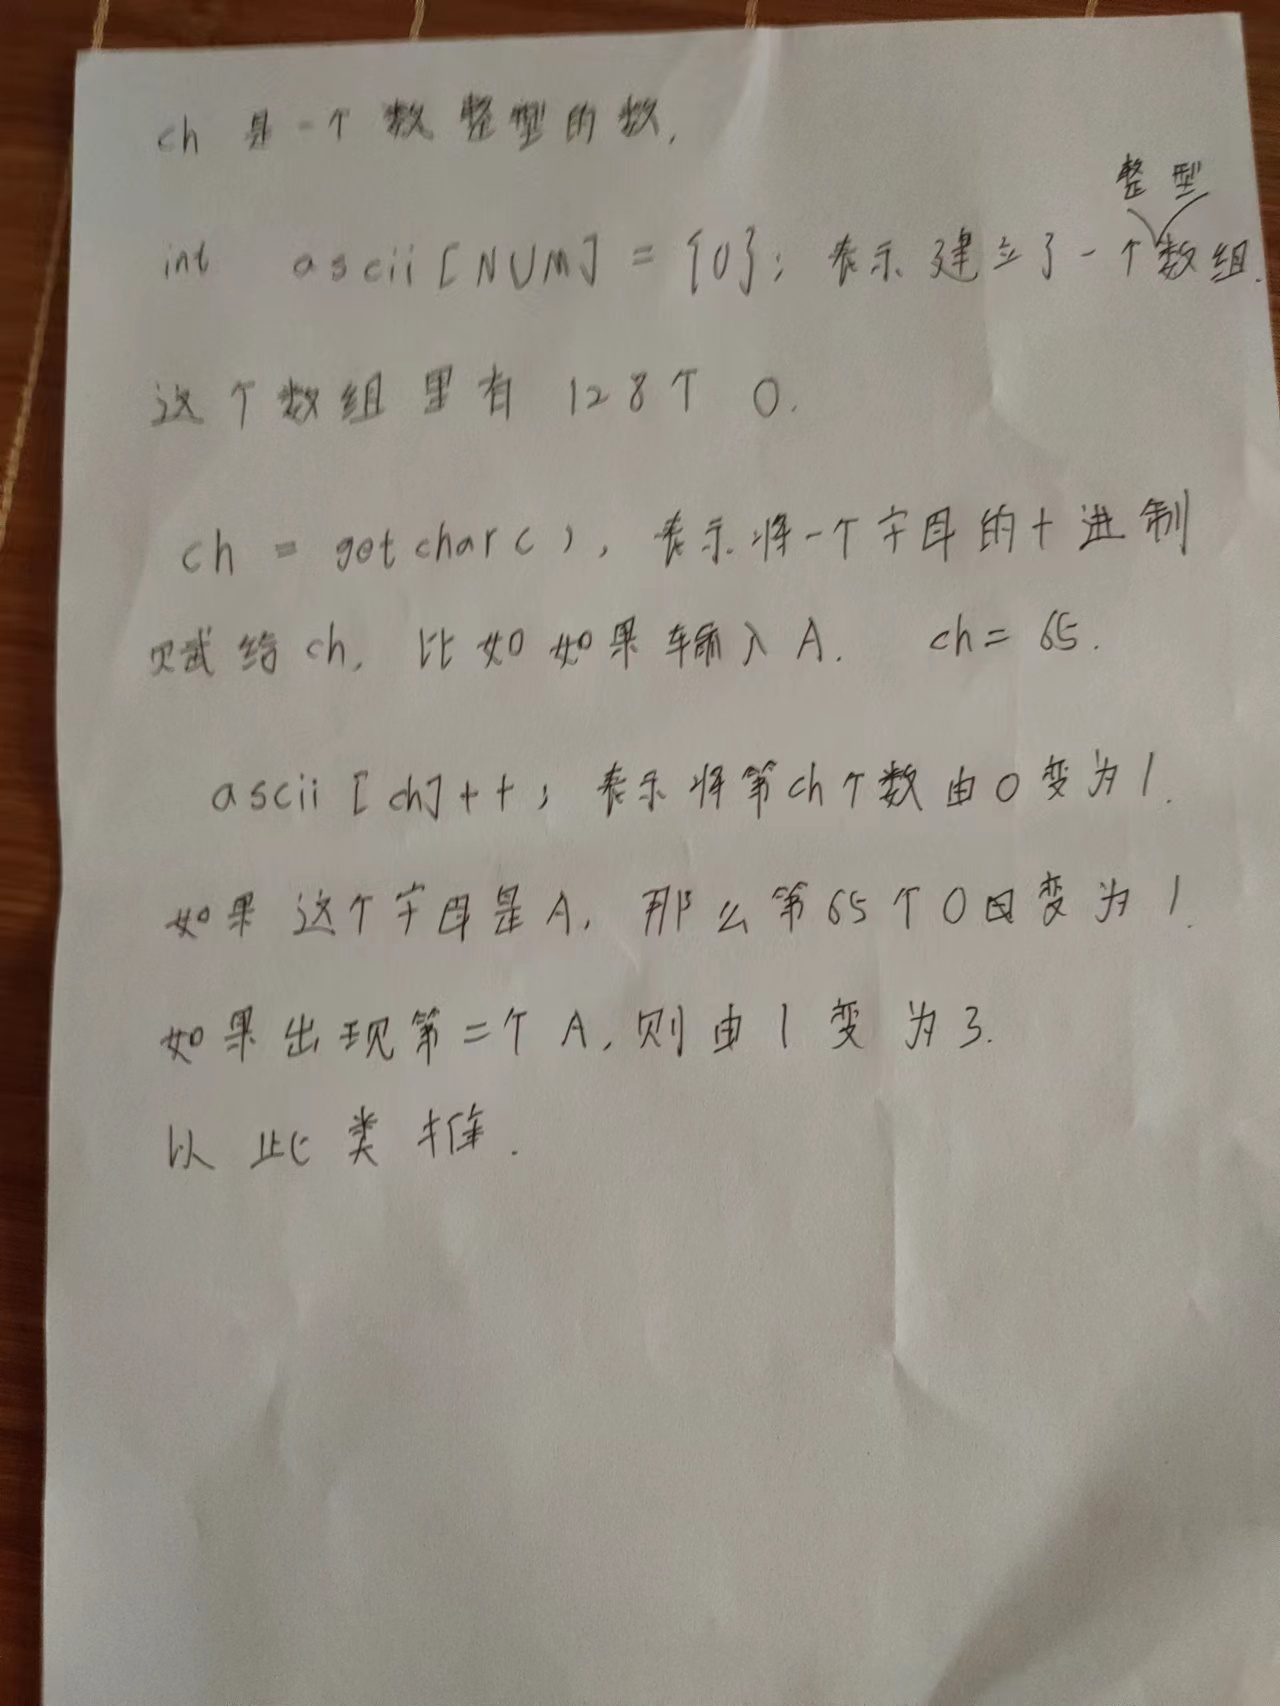 ch 是一个数整型的数.
整型
int ascii[NUM] = {0}; 表示建立了一个数组.
这个数组里有 128个 0.
ch = getchar(), 表示将一个字母的十进制
赋给ch. 比如如果输入A. ch = 65.
ascii[ch]++; 表示将第ch个数由0变为1.
如果这个字母是A, 那么第65个0由变为1.
如果出现第二个A, 则由1变为3.
以此类推.